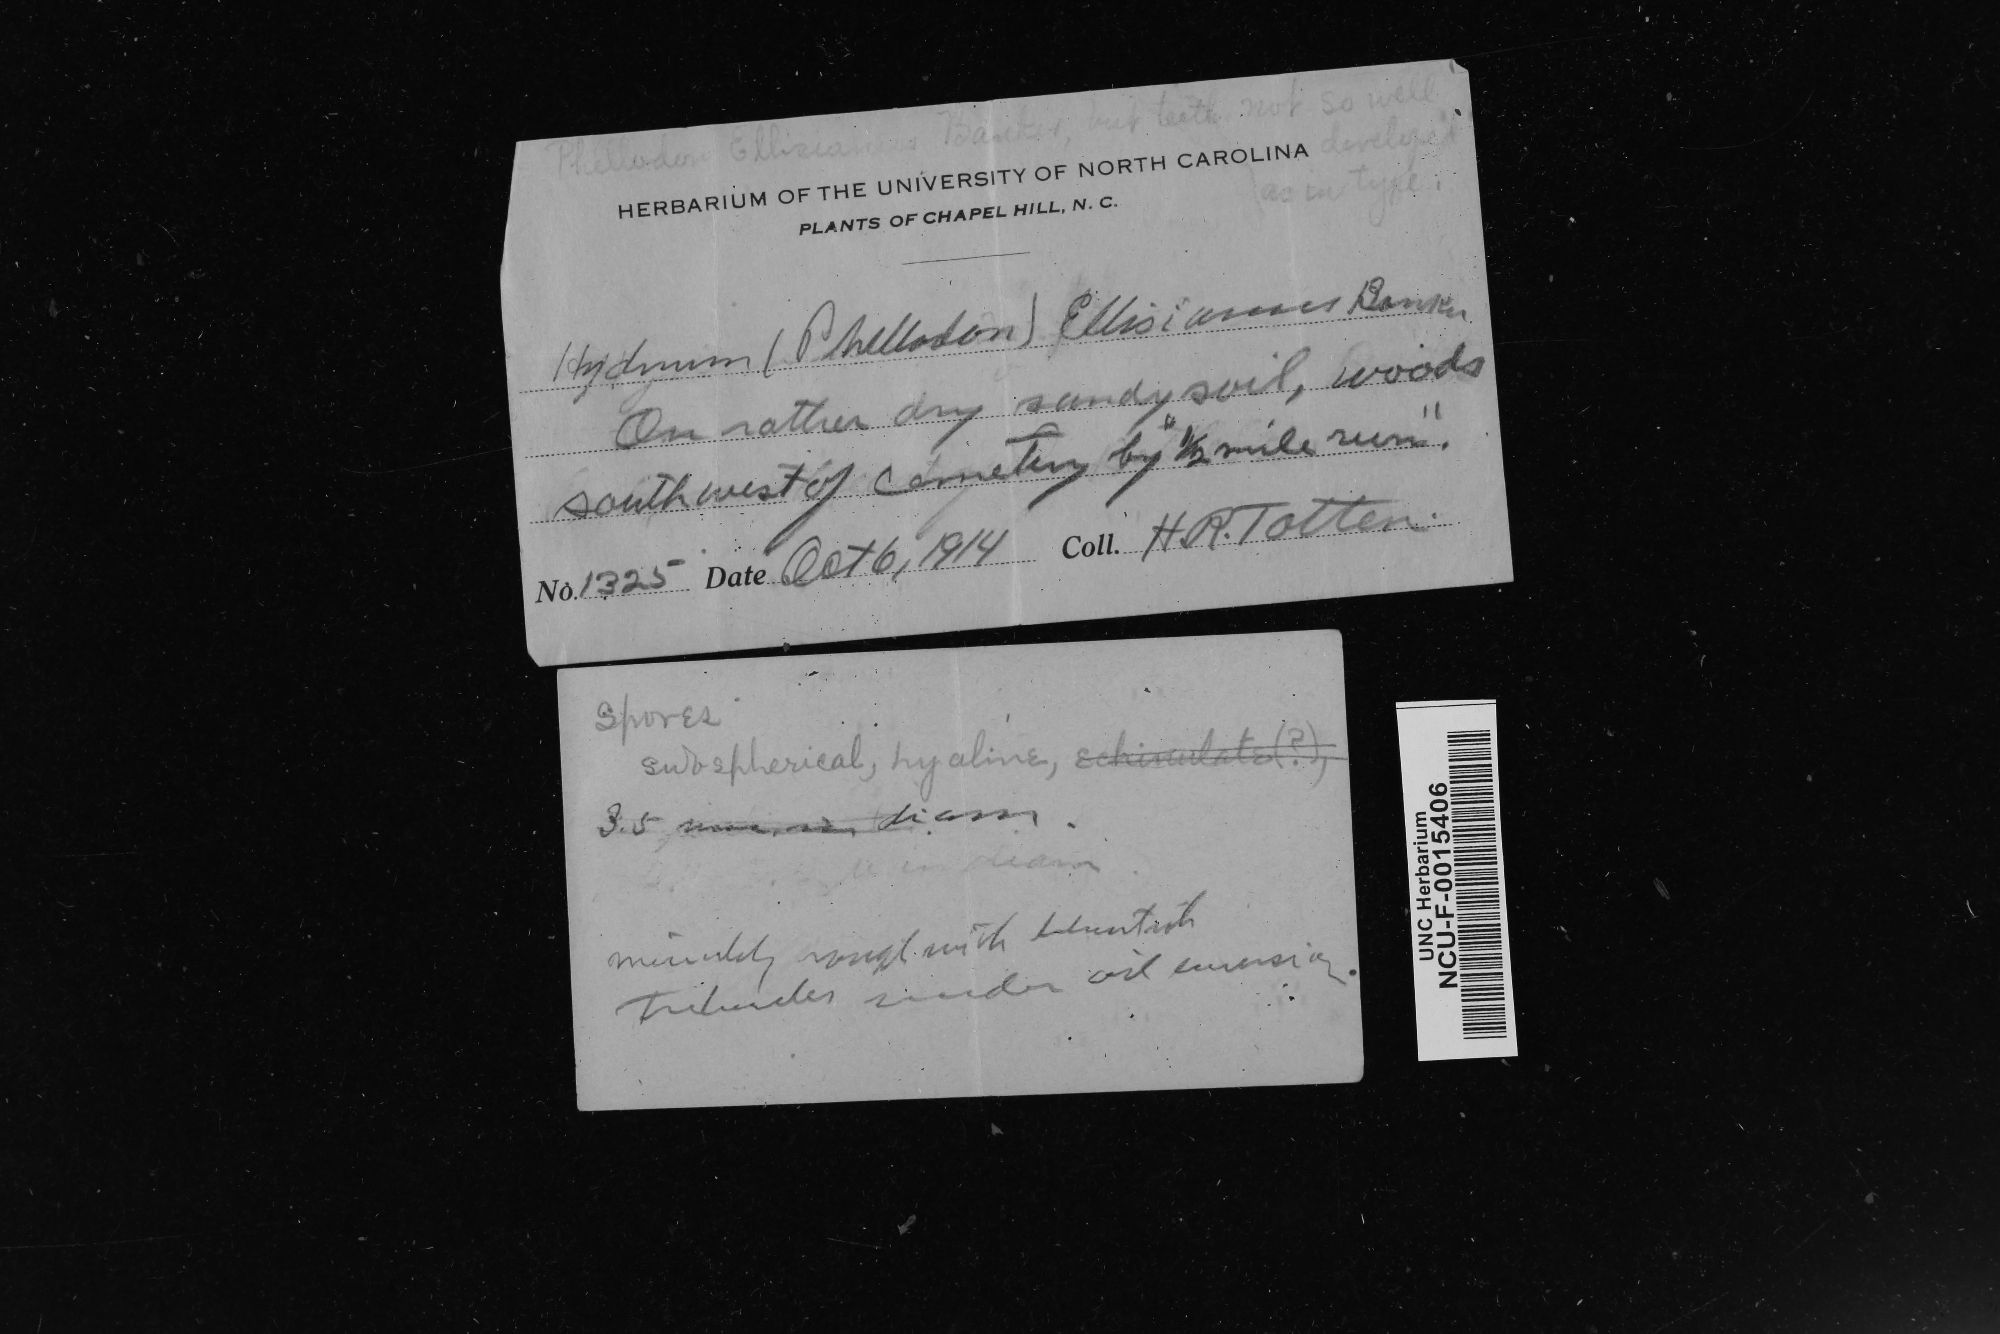 Phellodon Ellisianus Banker, but teeth not so well
developed
as in type.
HERBARIUM OF THE UNIVERSITY OF NORTH CAROLINA
PLANTS OF CHAPEL HILL, N. C.
Hydnum (Phellodon) Ellisianus Banker
On rather dry sandy soil, woods
southwest of cemetery by "1/2 mile run".
No. 1325 Date Oct 6, 1914 Coll. H.R. Totten.
Spores
subspherical, hyaline, echinulate(?),
3.5 diam.
in diam
minutely rough with bluntish
tubercles under oil emersion.
UNC Herbarium
NCU-F-0015406